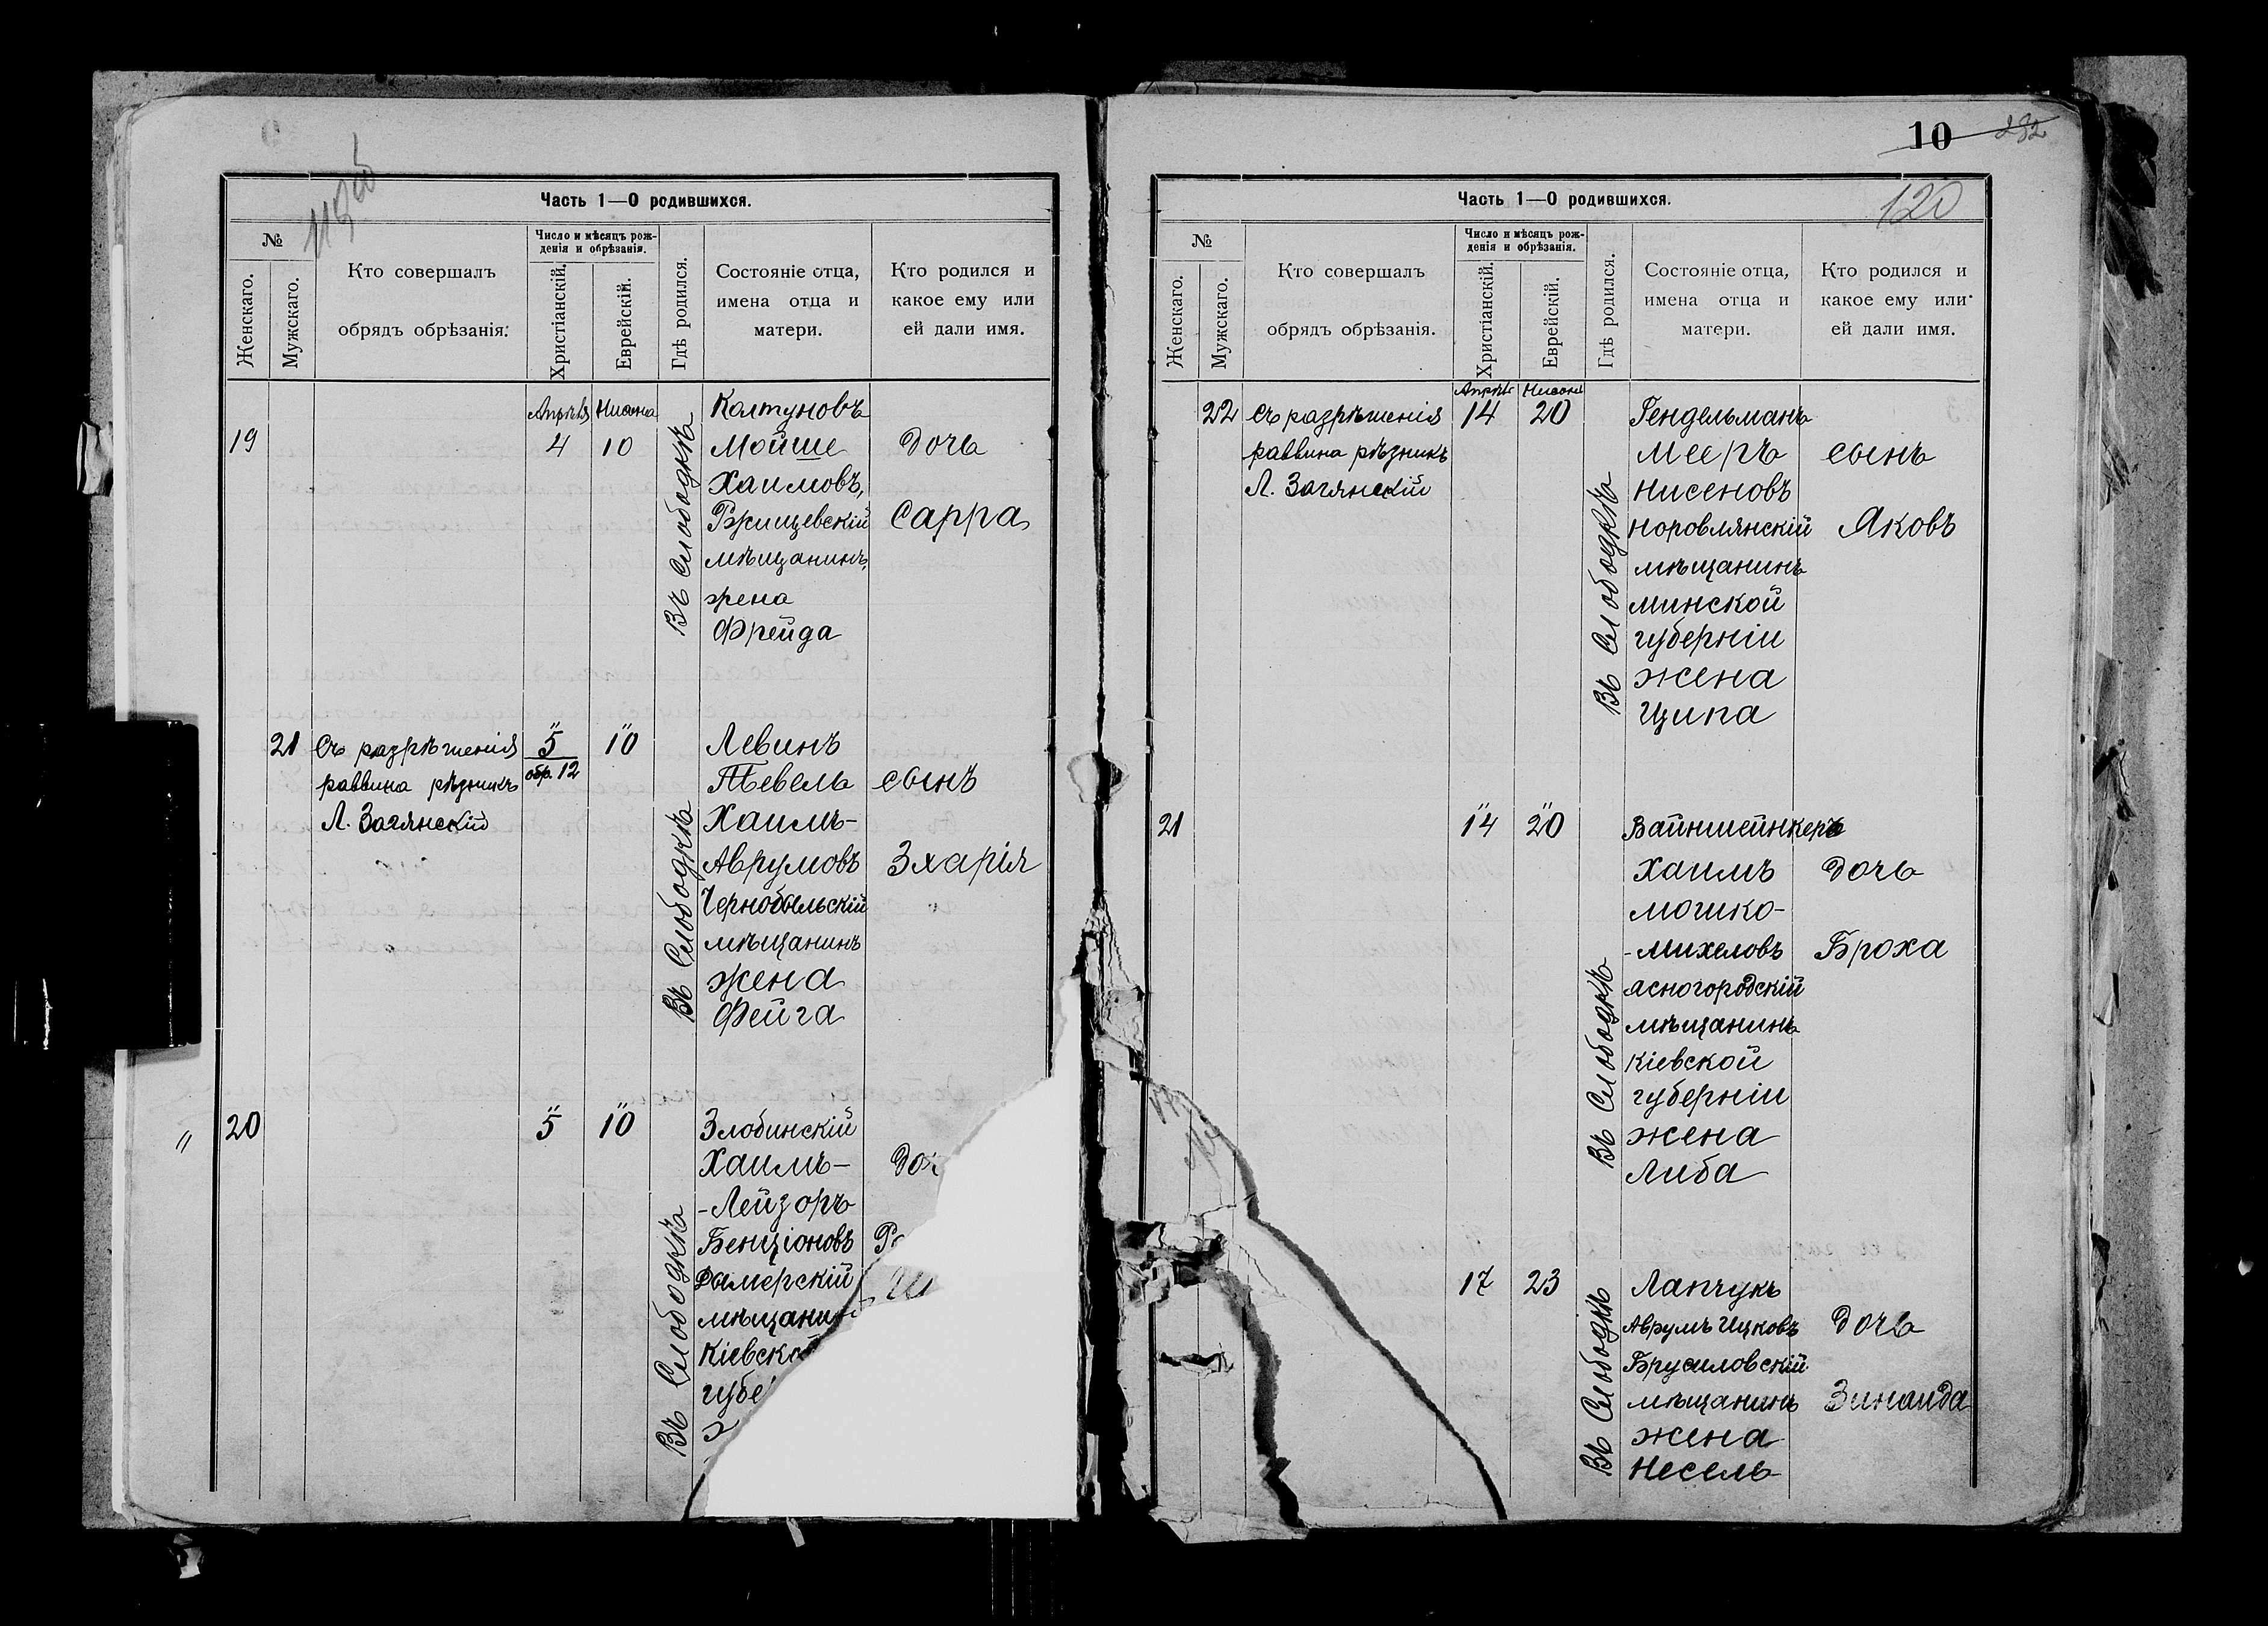 119 об
Часть 1—О родившихся.
№
Женскаго.
Мужскаго.
Кто совершалъ
обрядъ обрѣзанія.
Число и мѣсяцъ рож-
денія и обрѣзанія.
Христіанскій.
Еврейскій.
Гдѣ родился.
Состояніе отца,
имена отца и
матери.
Кто родился и
какое ему или
ей дали имя.
19
Апрѣля
4
Нисона
10
Въ Слободкѣ
Колтуновъ
Мойше
Хаимовъ,
Ржищевскій
мѣщанинъ,
жена
Фрейда
Дочь
Сарра
21
Съ разрѣшенія
раввина рѣзникъ
Л. Загянскій
5
обр. 12
10
Въ Слободкѣ
Левинъ
Тевель
Хаимъ-
Аврумовъ
Чернобыльскій
мѣщанинъ
жена
Фейга
сынъ
Зхарія
20
5
10
Въ Слободкѣ
Злобинскій
Хаимъ-
-Лейзоръ
Бенціоновъ
Дымерскій
мѣщани
Кіевско
губе
До
10
232
120
Часть 1—О родившихся.
№
Женскаго.
Мужскаго.
Кто совершалъ
обрядъ обрѣзанія.
Число и мѣсяцъ рож-
денія и обрѣзанія.
Христіанскій.
Еврейскій.
Гдѣ родился.
Состояніе отца,
имена отца и
матери.
Кто родился и
какое ему или
ей дали имя.
22
Съ разрѣшенія
раввина рѣзникъ
Л. Загянскій
Апрѣль
14
Нисона
20
Въ Слободкѣ
Гендельманъ
Мееръ
Нисеновъ
Норовлянскій
мѣщанинъ
Минской
губерніи
жена
Ципа
сынъ
Яковъ
21
14
20
Въ Слободкѣ
Вайнштейнкеръ
Хаимъ
Мошко-
-Михеловъ
Ясногородскій
мѣщанинъ
Кіевской
губерніи
жена
Либа
Дочь
Броха
17
23
Въ Слободкѣ
Лапчукъ
Аврумъ Ицковъ
Брусиловскій
мѣщанинъ
жена
Несель
Дочь
Зинаида